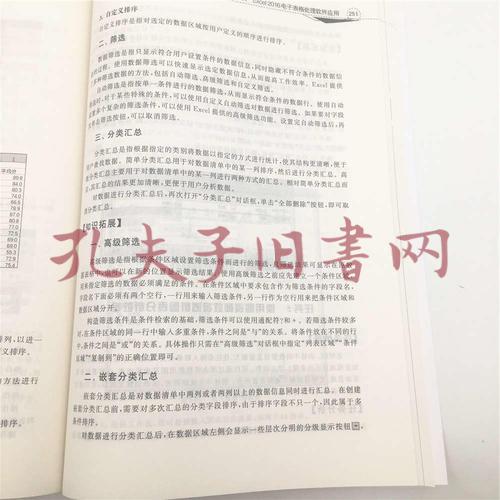 Excel 2016电子表格处理软件应用 251
3. 自定义排序
自定义排序是指对选定的数据区域按用户定义的顺序进行排序。
二、筛选
数据筛选是指只显示符合用户设置条件的数据信息,同时隐藏不符合条件的数据信
的过程。使用数据筛选可以快速显示选定数据信息,从而提高工作效率。Excel 提供
多种筛选数据的方法,包括自动筛选、高级筛选和自定义筛选。
自动筛选是指按单一条件进行的数据筛选,从而显示符合条件的数据行。使用自动
筛选时,对于某些特殊的条件,可以使用自定义自动筛选对数据进行筛选。如果要对字段
设置多个复杂的筛选条件,可以使用 Excel 提供的高级筛选功能。设置完自动筛选后,再
筛选按钮,可以取消筛选。
三、分类汇总
分类汇总是指根据指定的类别将数据以指定的方式进行统计,使其结构更清晰,便于
用户查找数据。简单分类汇总用于对数据清单中的某一列排序,然后进行分类汇总。高
类汇总主要用于对数据清单中的某一列进行两种方式的汇总。相对简单分类汇总而
言,其汇总的结果更加清晰,更便于用户分析数据。
对数据进行分类汇总后,再次打开“分类汇总”对话框,单击“全部删除”按钮,即可取
消分类汇总。
【知识拓展】
一、高级筛选
高级筛选是指根据条件区域设置筛选条件而进行的筛选
使用高级筛选之前应先建立一个条件区域,
用来指定筛选的数据必须满足的条件。在条件区域中要求包含作为筛选条件的字段名,
字段名下面必须有两个空行,一行用来输入筛选条件,另一行作为空行用来把条件区域和
数据区域分开。
构造筛选条件是条件检索的基础,筛选条件可以使用通配符?和*。若筛选条件较多
时,在条件区域的同一行中输入多重条件,条件之间是“与”的关系。将条件放在不同的行
中,条件之间是“或”的关系。具体操作只需在“高级筛选”对话框中指定“列表区域”“条件
区域”“复制到”的正确位置即可。
二、嵌套分类汇总
嵌套分类汇总是对数据清单中两列或者两列以上的数据信息同时进行汇总。在创建
嵌套分类汇总前,需要对多次汇总的分类字段排序,由于排序字段不只一个,因此属于多
条件排序。
对数据进行分类汇总后,在数据区域左侧会显示一些层次分明的分级显示按钮
孔夫子旧书网
平均分
89.8
84.0
排列,以进一
定义排序。
和方法进行
排序。